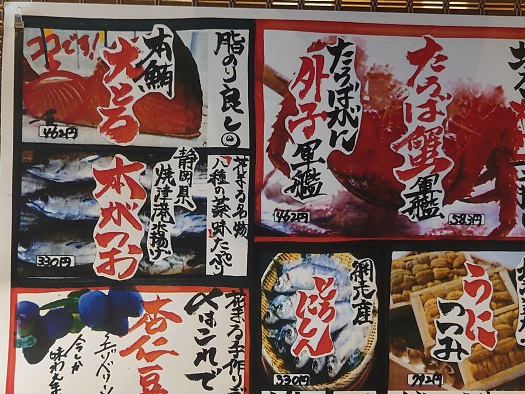 ココです!
本鮪
大とろ
脂のり良し
462円
静岡県
焼津港水揚げ
本がつお
花まる名物
八種の薬味たっぷり
330円
たらばがに
外子
軍艦
462円
たらば蟹
軍艦
583円
網走産
とろにしん
330円
うに
つつみ
792円
花まる手作り
〆はこれで
杏仁豆
今しか